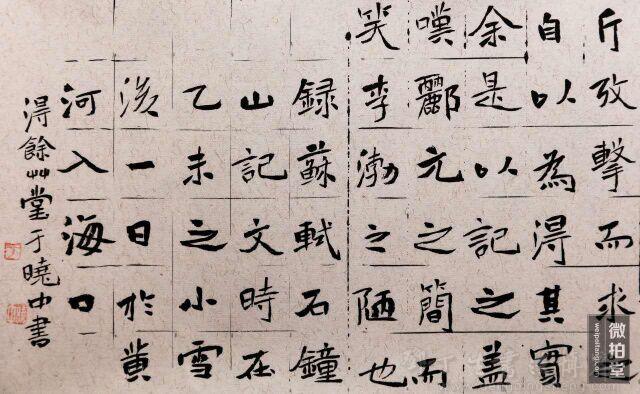 斤攷擊而求
自以為淂其實
余是以記之盖
嘆酈元之簡而
笑李渤之陋也
録蘇軾石鐘
山記文時在
乙未之小雪
後一日於黄
河入海口
淂餘艸堂于曉中書
微拍堂
weipaitang.com